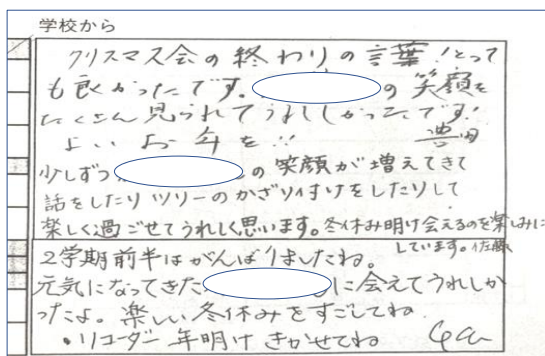 学校から
クリスマス会の終わりの言葉！とって
も良かったです。の笑顔を
たくさん見られてうれしかったです！
よいお年を!!
少しずつの笑顔が増えてきて
話をしたりツリーのかざり付けをしたりして
楽しく過ごせてうれしく思います。冬休み明け会えるのを楽しみに
しています。佐藤
2学期前半はがんばりましたね。
元気になってきたに会えてうれしか
ったよ。楽しい冬休みをすごしてね
・リコーダー年明けきかせてね